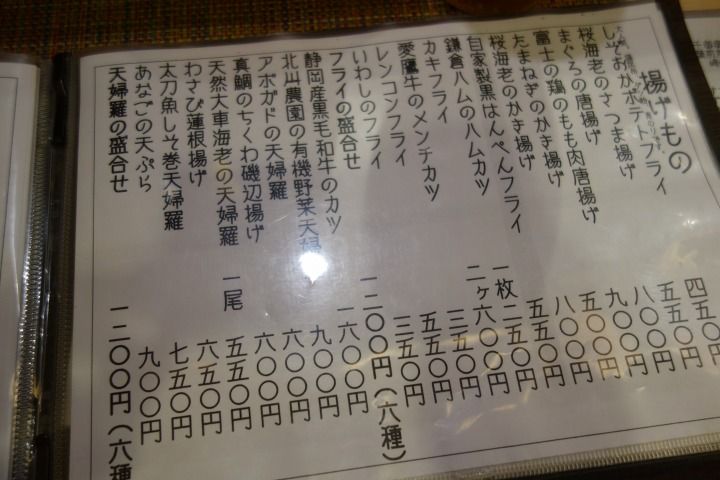 揚げもの
しずおかポテトフライ 四五〇
桜海老のさつま揚げ 五五〇円
まぐろの唐揚げ 八〇〇円
富士の鶏のもも肉唐揚げ 九〇〇円
たまねぎのかき揚げ 五〇〇円
桜海老のかき揚げ 八〇〇円
自家製黒はんぺんフライ 五五〇円
鎌倉ハムのハムカツ 一枚 二五〇円
カキフライ 二ヶ 六〇〇円
愛鷹牛のメンチカツ 三五〇円
レンコンフライ 五五〇円
いわしのフライ 三五〇円
フライの盛合せ 一二〇〇円(六種)
静岡産黒毛和牛のカツ 一六〇〇円
北山農園の有機野菜天婦 九〇〇円
アボガドの天婦羅 六〇〇円
真鯛のちくわ磯辺揚げ 六〇〇円
天然大車海老の天婦羅 一尾 五五〇円
わさび蓮根揚げ 六五〇円
太刀魚しそ巻天婦羅 七五〇円
あなごの天ぷら 九〇〇円
天婦羅の盛合せ 一二〇〇円(六種